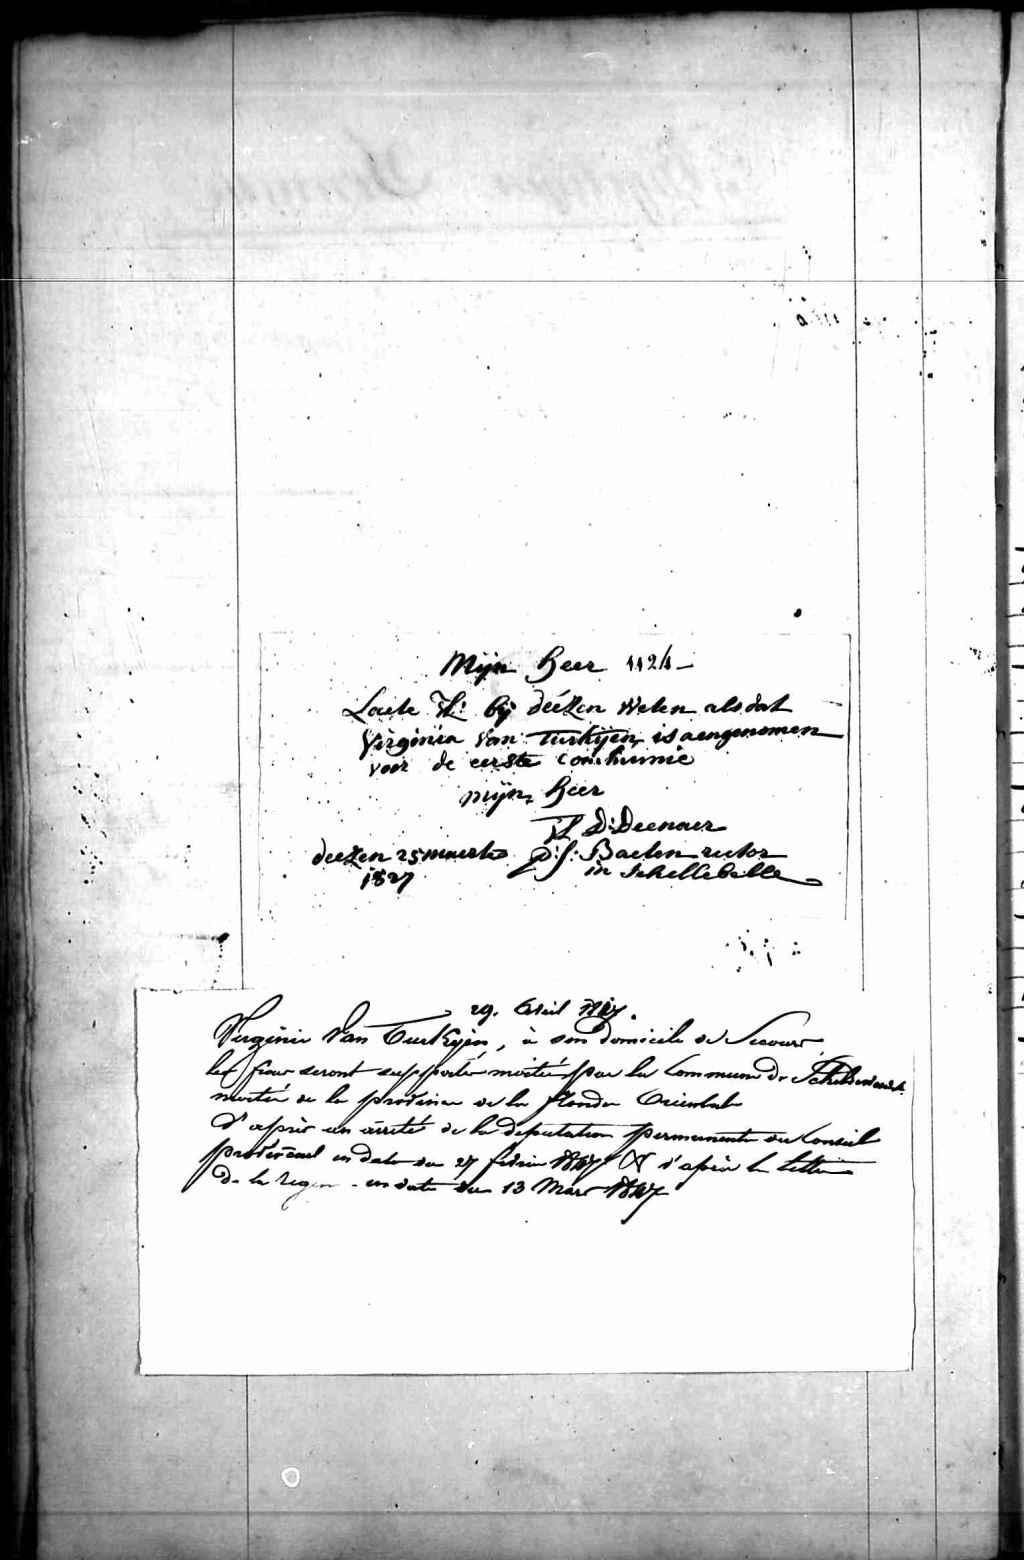 Mijn heer 1124
Laete UL: bij deézen weten als dat
Virginia Van Turkÿen, is aengenomen
voor de eerste communie
Mijn heer
UL D: Deenaer
deezen 25 maerte P: J: Baeten rector
1827 in Schellebelle
29. Avril 1847.
Virginie Van Turkÿen, à son domicile de Secours
les frais seront supportés moitié par la Commune de
moitié de la province de la flandre Orientale
D'après un arrêté de la deputation permanente du Conseil
provincial en date du 27 février 1847 & d'après la lettre
de la en date du 13 Mars 1847